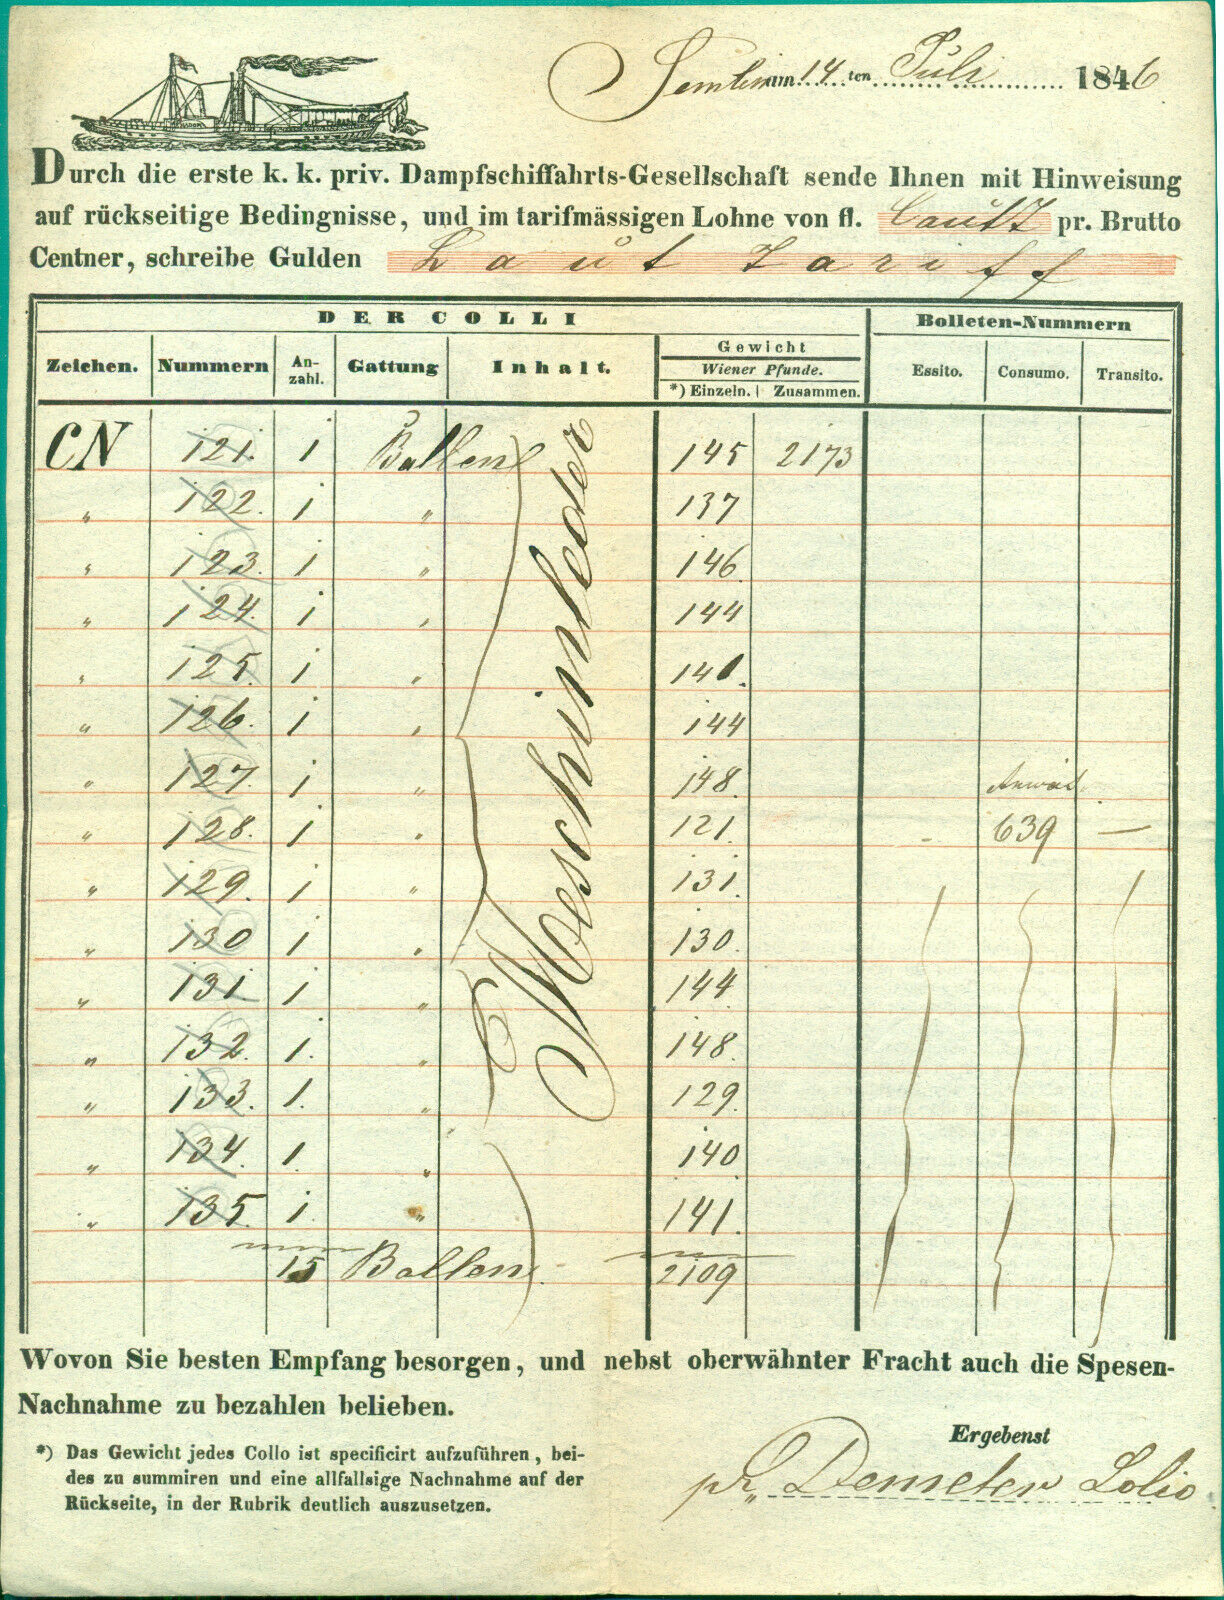 Semlin am 14 ten Juli 1846
Durch die erste k. k. priv. Dampfschiffahrts-Gesellschaft sende Ihnen mit Hinweisung
auf rückseitige Bedingnisse, und im tarifmässigen Lohne von fl. pr. Brutto
Centner, schreibe Gulden Laut Tariff
DER COLLI
Bolleten-Nummern
Zeichen. Nummern An-zahl. Gattung Inhalt. Gewicht Wiener Pfunde. *) Einzeln. Zusammen. Essito. Consumo. Transito.
CN 121. 1 Ballen 145 2173
„ 122. 1 „ 137
„ 123. 1 „ 146
„ 124. 1 „ 144
„ 125. 1 „ 141.
„ 126. 1 „ 144
„ 127. 1 „ 148.
„ 128. 1 „ 121. - 639 —
„ 129. 1 „ 131.
„ 130 1 „ 130.
„ 131 1 „ 144
„ 132. 1. „ 148.
„ 133. 1. „ 129.
„ 134. 1. „ 140
„ 135. 1. „ 141.
15 Ballen 2109
Moeschinleder
Wovon Sie besten Empfang besorgen, und nebst oberwähnter Fracht auch die Spesen-
Nachnahme zu bezahlen belieben.
*) Das Gewicht jedes Collo ist specificirt aufzuführen, bei-
des zu summiren und eine allfallsige Nachnahme auf der
Rückseite, in der Rubrik deutlich auszusetzen.
Ergebenst
pr. Demeter Lolio